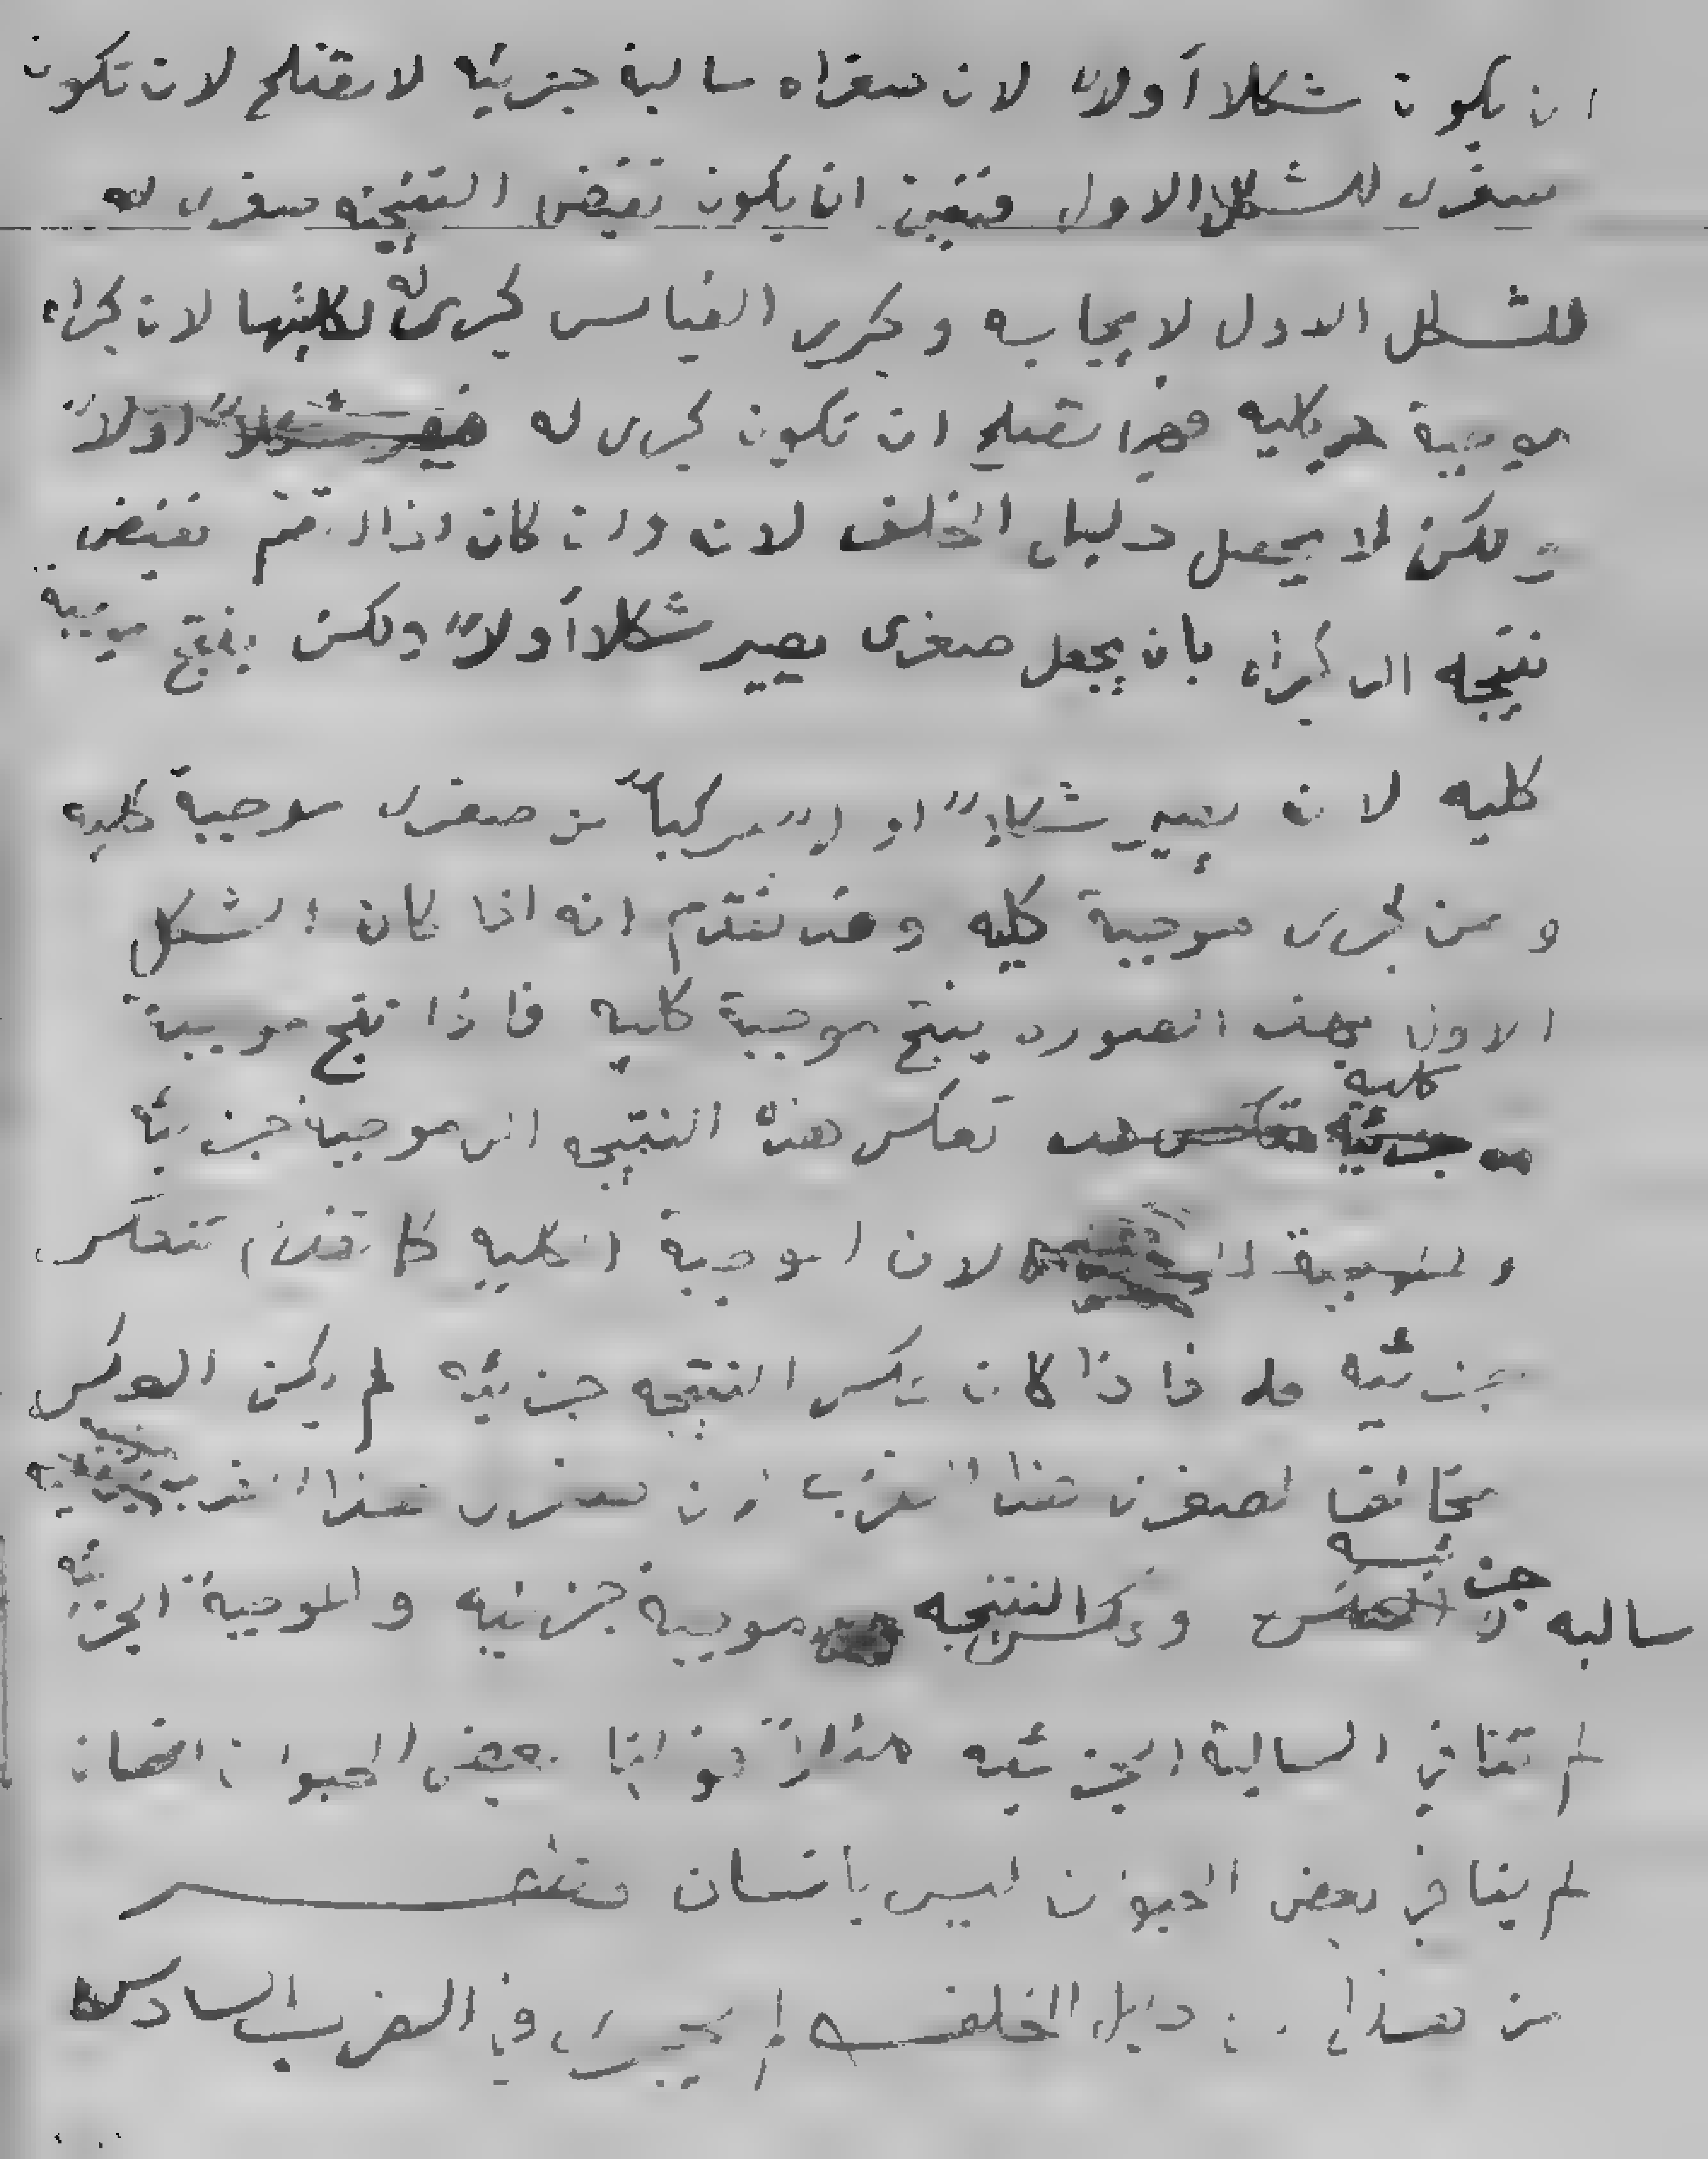 ان يكون شكلا أولاً لان صغراه سالبة جزئيه لا تصلح لان تكون
صغرى للشكل الاول فتعين ان يكون نقيض النتيجه صغرى له
للشكل الاول لايجابيه وكبرى القياس كبرى له لكليتها لان كبراه
موجبة كليه تصلح ان تكون كبرى له شكلاً اولاً
ولكن لا يجعل دليل الخلف لانه وان كان اذا ضم نقيض
نتيجه الى كبراه بان يجعل صغرى يصير شكلا أولاً ولكن ينتج موجبة
كليه لانه يصير شكلاً اولاً مركباً من صغرى موجبة كليه
ومن كبرى موجبة كليه وقد تقدم انه اذا كان الشكل
الاول بهذه الصوره ينتج موجبة كليه فاذا نتج موجبة
كليه
جزئيه تعكس هذه النتيجه الى موجبة جزئيه
لان الموجبة الكليه كما تقدم تنعكس
جزئيه فاذا كان عكس النتيجه جزئيه لم يكن العكس
مخالفا لصغرى هذا الضرب لان صغرى هذا الضرب
جزئيه
سالبه وعكس النتيجه موجبة جزئيه والموجبة الجزئيه
لم تنافي السالبة الجزئيه مثلاً قولنا بعض الحيوان انسان
لم ينافي بعض الحيوان ليس بانسان فتلخص
من هذا ان دليل الخلف لم يجرى في الضرب السادس